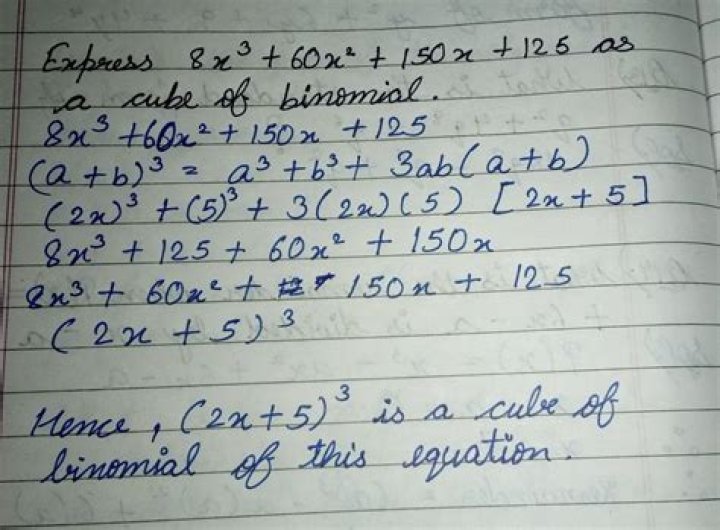 Express 8x³ + 60x² + 150x + 125 as
a cube of binomial.
8x³ + 60x² + 150x + 125
(a + b)³ = a³ + b³ + 3ab(a + b)
(2x)³ + (5)³ + 3(2x)(5) [2x + 5]
8x³ + 125 + 60x² + 150x
8x³ + 60x² + 150x + 125
(2x + 5)³
Hence, (2x+5)³ is a cube of
binomial of this equation.